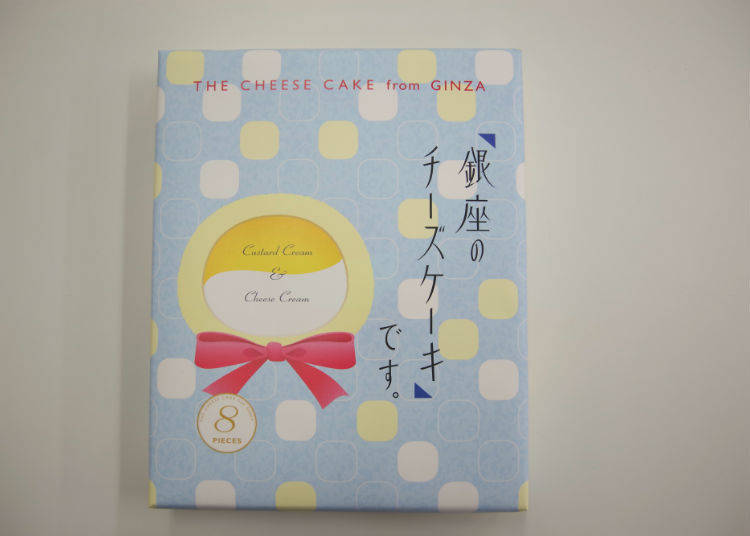 THE CHEESE CAKE from GINZA
「銀座の
チーズケーキ」
です。
Custard Cream
&
Cheese Cream
8
PIECES